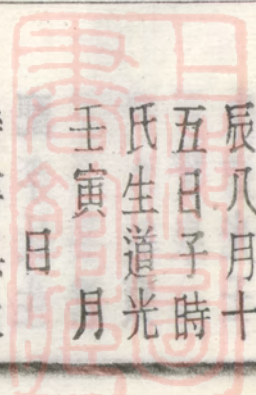 辰八月十
五日子時
氏生道光
壬寅　月
日